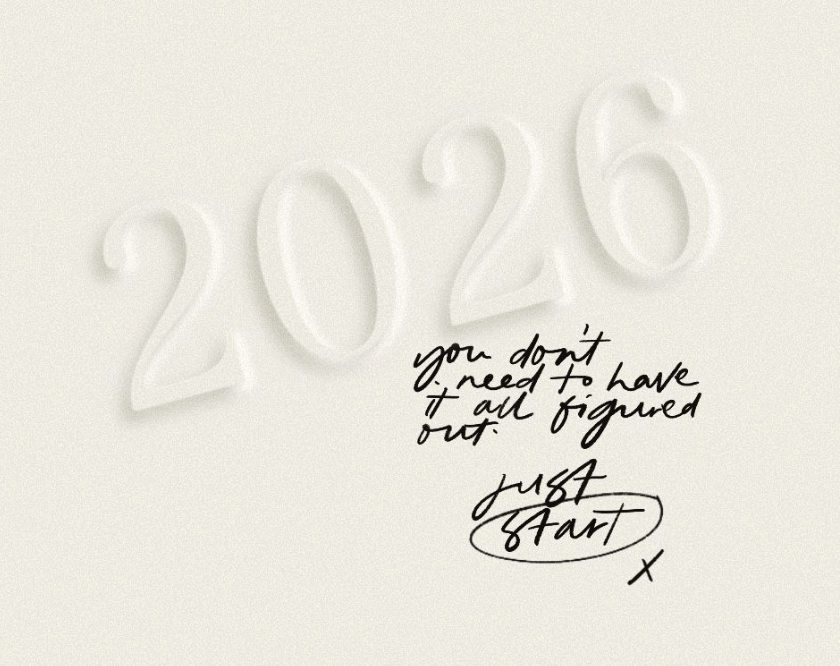 2026
you don't
need to have
it all figured
out.
just
start
x